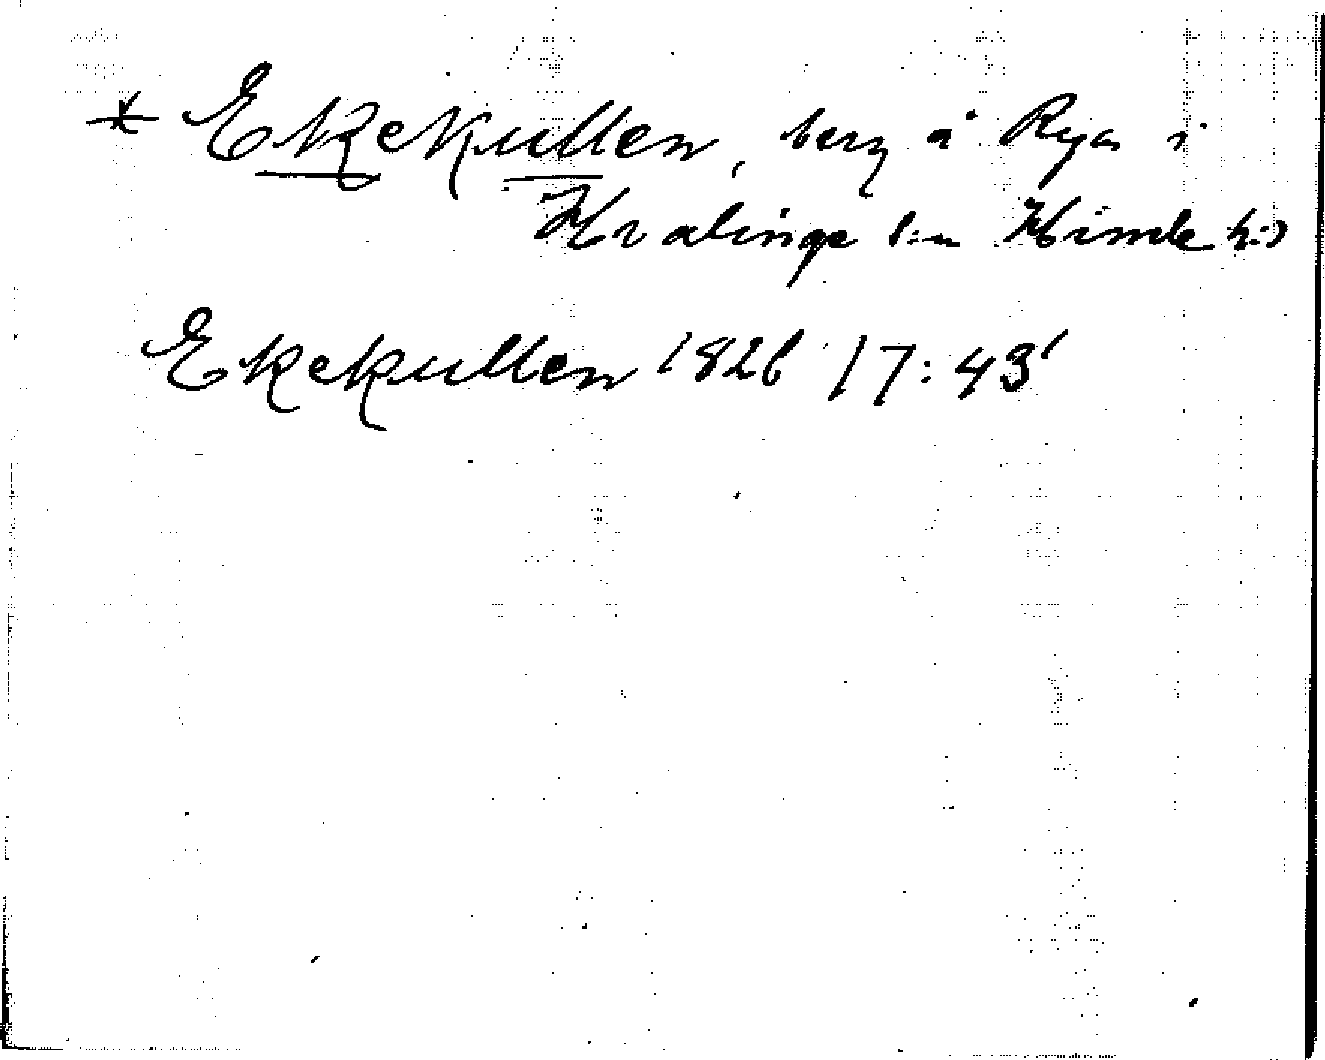 * Ekekullen, berg å Rya i
Hvalinge s:n Himle h:d
Ekekullen 1826 17:43'